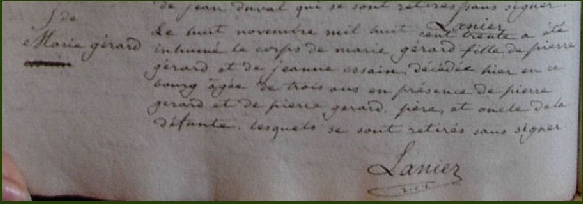 de jean duval qui se sont retirés sans signer.
Lanier
S. de
Marie gérard
Le huit novembre mil huit cent trente a été
inhumé le corps de marie gérard fille de pierre
gérard et de jeanne essain, décédée hier en ce
bourg agée de trois ans en présence de pierre
gerard et de pierre gerard, père, et oncle de la
défunte. lesquels se sont retirés sans signer
Lanier